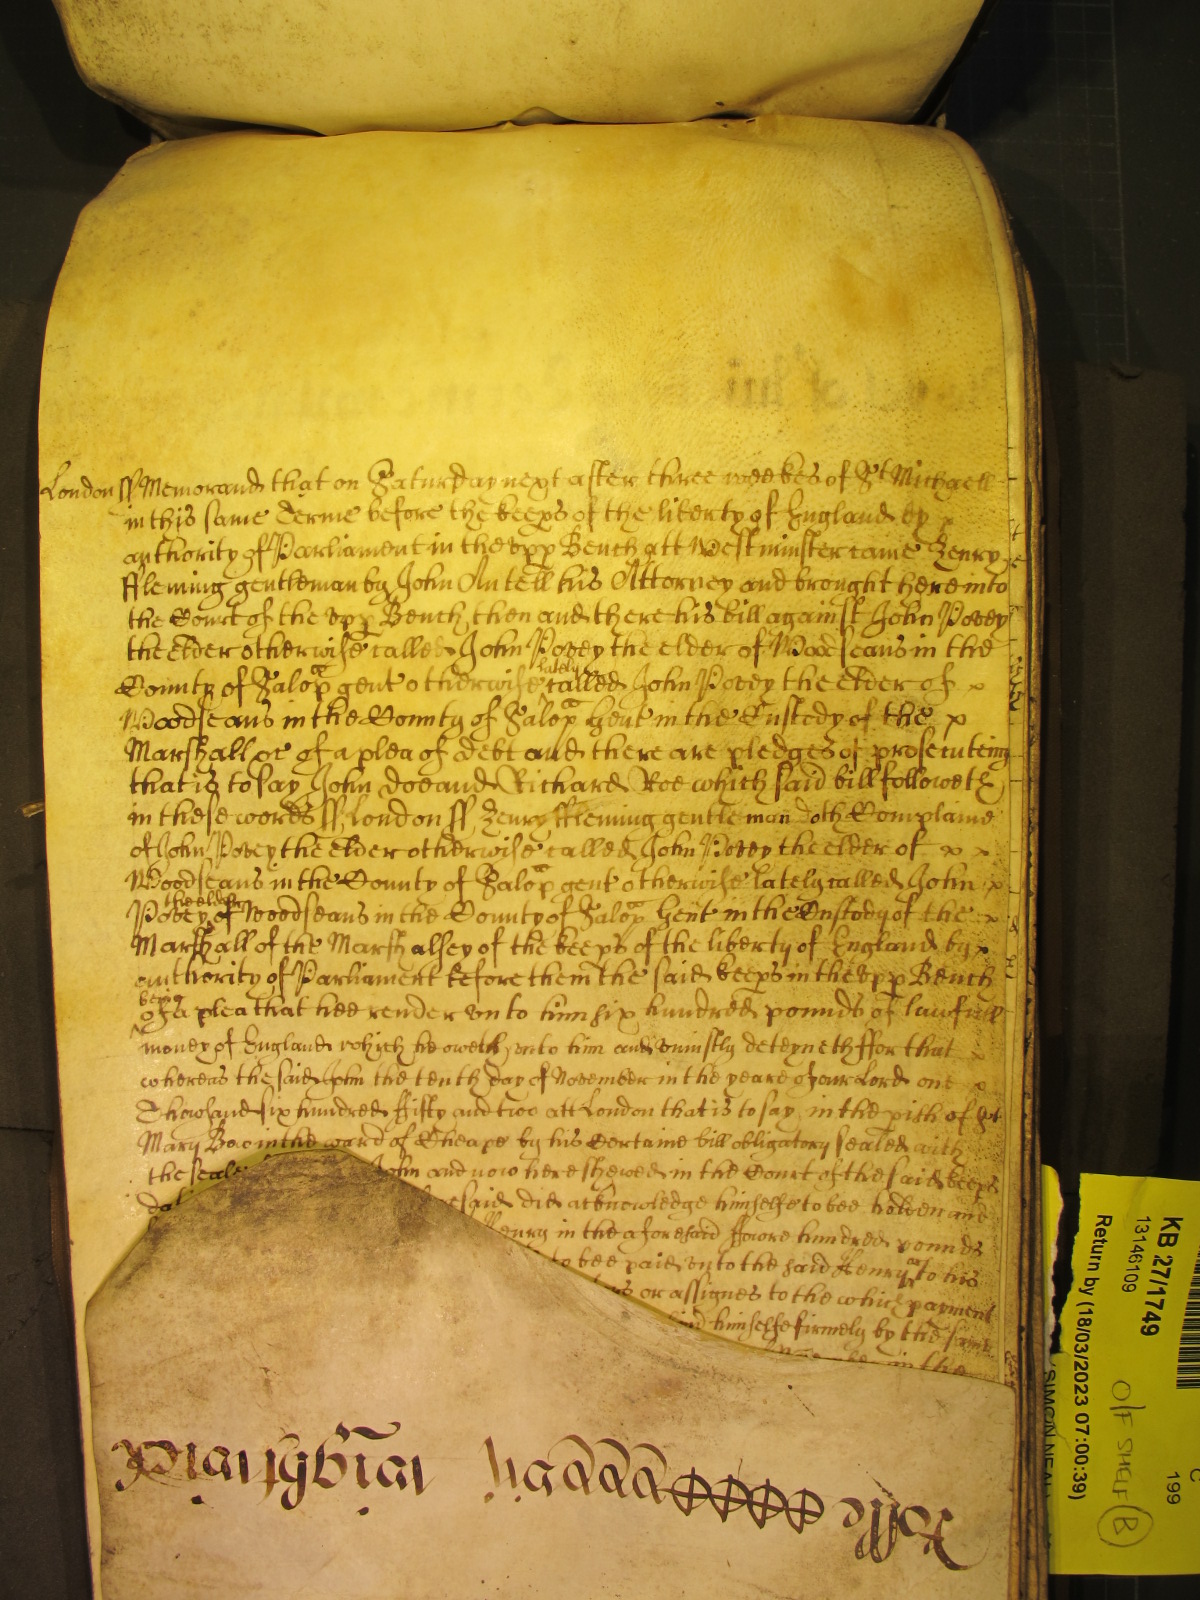 London ss Memorand that on Saturday next after three weekes of St Michaell
in this same Terme before the keeps of the liberty of England by x
authority of Parliament in the upp Bench att Westminster came Henry
ffleming gentleman by John Antell his Attorney and brought here into
the Court of the upp Bench then and there his bill against John Povey
the elder otherwise called John Povey the elder of Woodseaus in the
County of Salop gent otherwise lately called John Povey the elder of x
Woodseaus in the County of Salop Gent in the Custody of the x
Marshall &c of a plea of debt and there are pledges of prosecuteing
that is to say John doe and Richard Roe which said bill followeth
in these words ss London ss Henry ffleming gentleman doth Complaine
of John Povey the elder otherwise called John Povey the elder of x x
Woodseaus in the County of Salop gent otherwise lately called John x
Povey the elder of Woodseaus in the County of Salop Gent in the Custody of the x
Marshall of the Marshalsey of the keeps of the liberty of England by x
authority of Parliament before them the said keeps in the upp Bench
being of a plea that hee render unto him six hundred pounds of lawfull
money of England which he oweth unto him and uniustly deteyneth ffor that
whereas the said John the tenth day of November in the yeare of our Lord one x
Thowsand six hundred ffifty and two att London that is to say in the pish of St
Mary Bow in the ward of Cheape by his Certaine bill obligatory sealed with
the seale John and now here shewed in the Court of the said keeps
esaid did acknowledge himselfe to bee holden and
Henry in the aforesaid ffowre hundred pounds
to bee paid unto the said Henry or to his
or assignes to the which payment
himselfe firmely by the same
in the
KB 27/1749
13146109
Return by (18/03/2023 07:00:39)
SIMON NEAL
O/F SHELF B
C
199